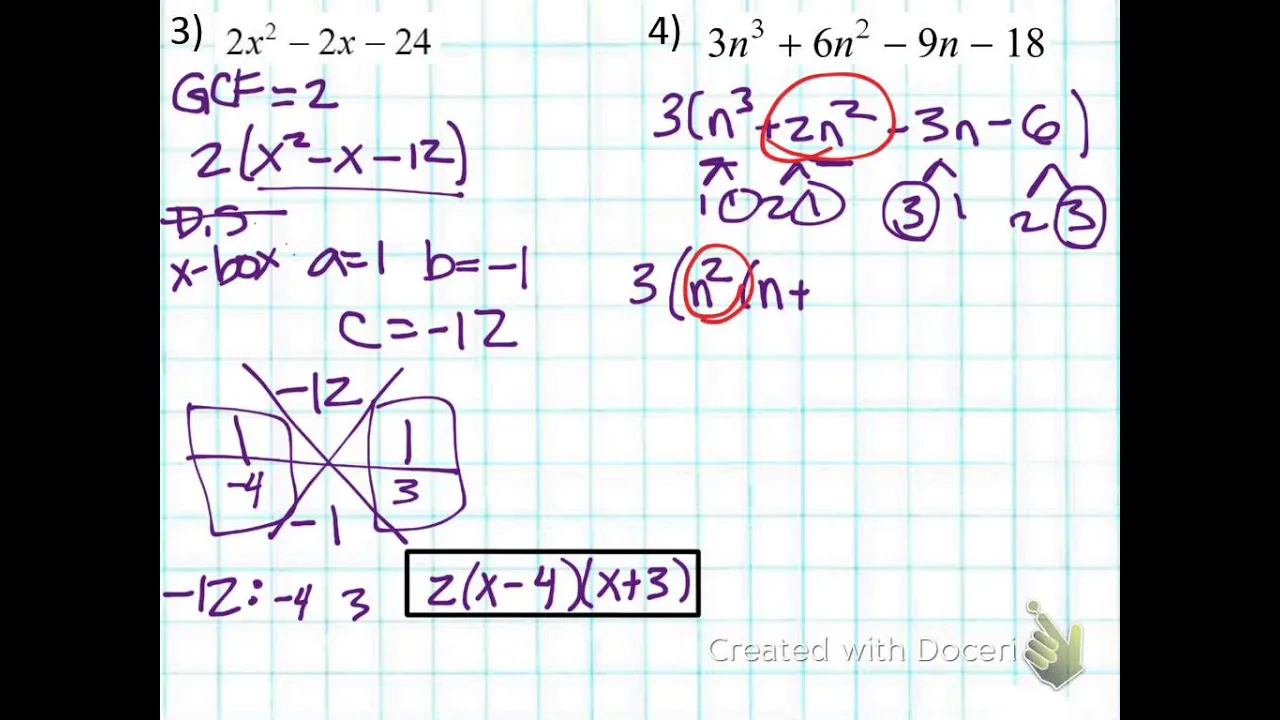 3) 2x² – 2x – 24
GCF = 2
2(x² – x – 12)
D.S
x-box a=1 b=-1
c = -12
-12
1 1
-4 3
-1
-12: -4 3
2(x-4)(x+3)
4) 3n³ + 6n² – 9n – 18
3(n³ + 2n² - 3n - 6)
1 1 2 1 3 1 2 3
3(n²(n+
Created with Doceri